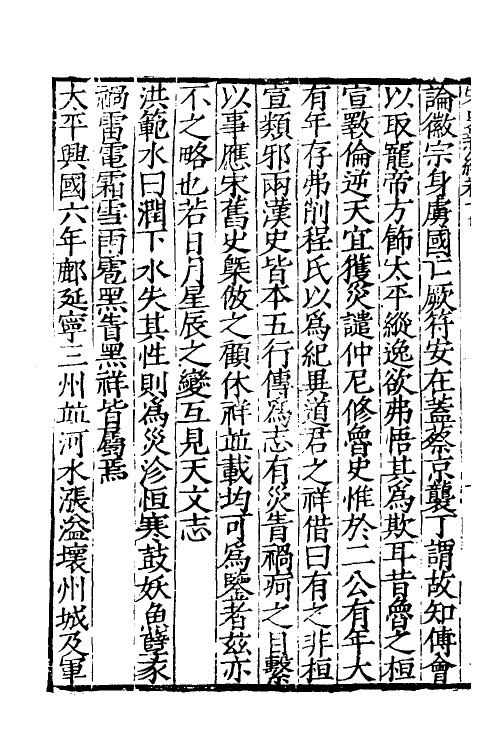 論徽宗身虜國亡厥符安在蓋蔡京襲丁謂故知傅會
以取寵帝方飾太平縱逸欲弗悟其為欺耳昔魯之桓
宣斁倫逆天宜獲災譴仲尼修魯史惟於二公有年大
有年存弗削程氏以為紀異道君之祥借曰有之非桓
宣類邪兩漢史皆本五行傳為志有災眚禍痾之目繫
以事應宋舊史槩倣之顧休祥並載均可為鑒者茲亦
不之略也若日月星辰之變互見天文志
洪範水曰潤下水失其性則為災沴恒寒鼓妖魚孽豕
禍雷電霜雪雨雹黑眚黑祥皆屬焉
太平興國六年鄜延寧三州並河水漲溢壞州城及軍